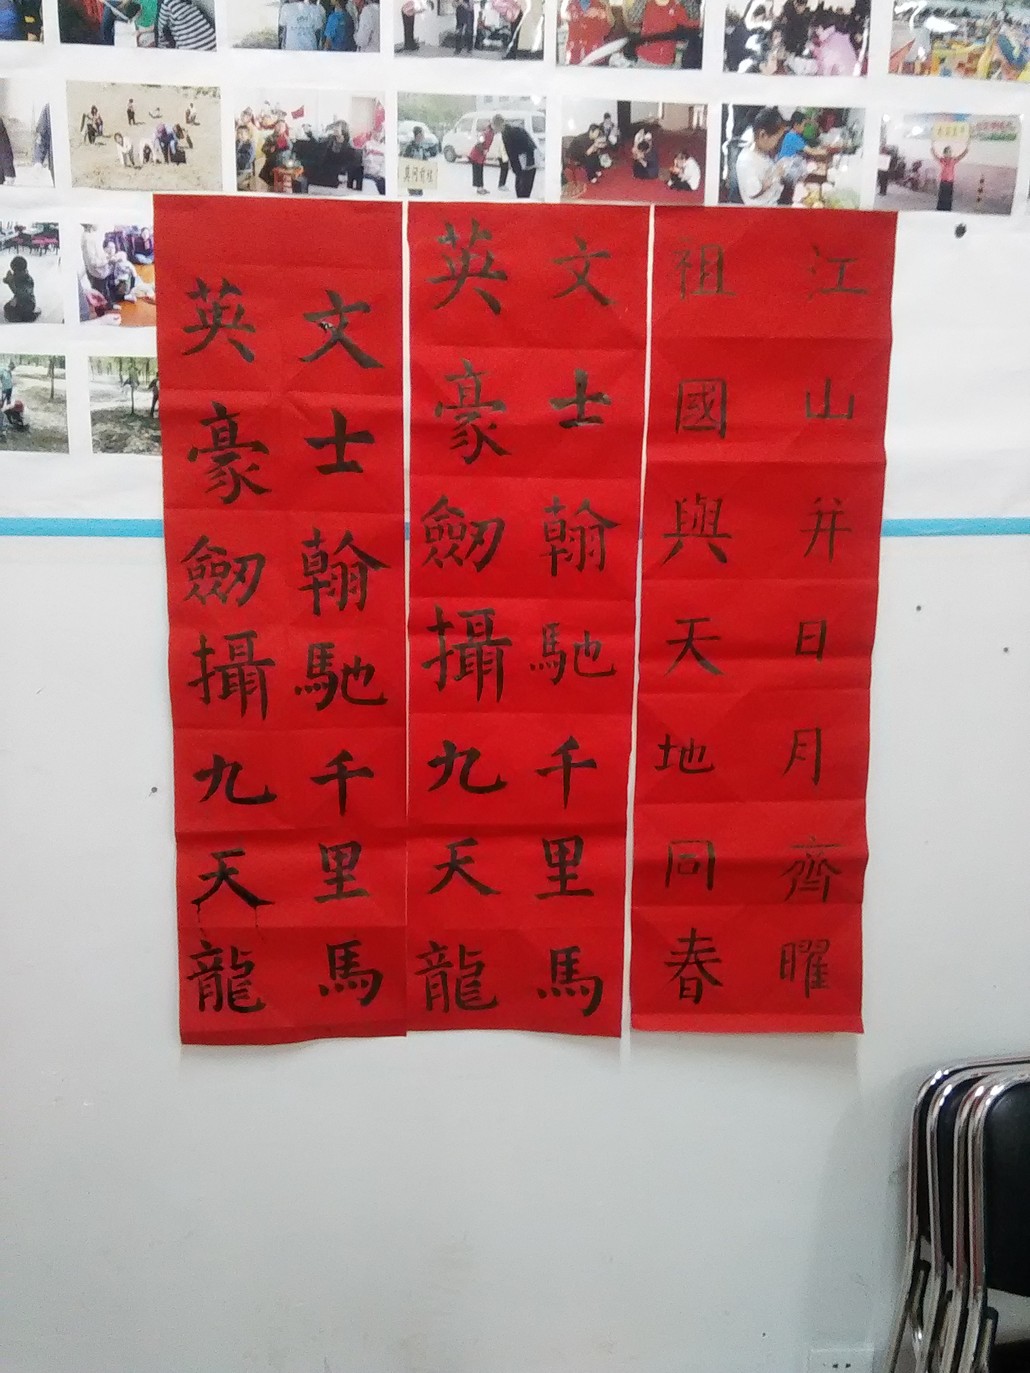 江山并日月齊曜
祖國與天地同春
文士翰馳千里馬
英豪劒攝九天龍
文士翰馳千里馬
英豪劒攝九天龍